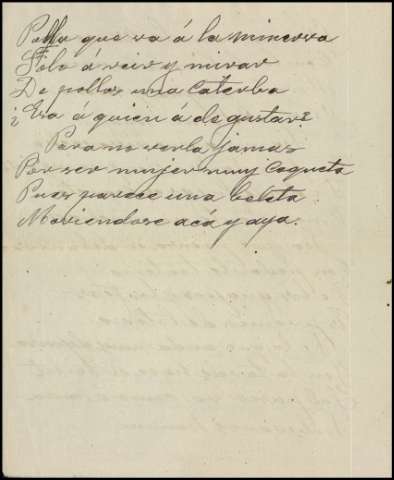 Polla que va á la minerva
Solo á reir y mirar
De pollos una caterba
¿Esa á quien á de gustar?
Para no verla jamas
Por ser mujer muy coqueta
Pues parece una beleta
Moviendose acá y aya.